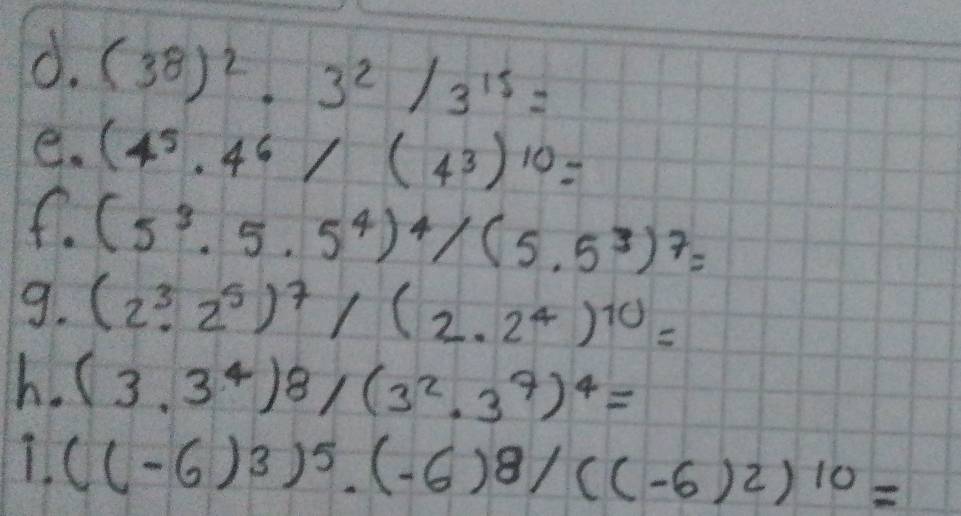 d. (3⁸)² . 3² / 3¹⁵ =
e. (4⁵ . 4⁶ / (4³)¹⁰ =
f. (5³ . 5 . 5⁴)⁴ / (5 . 5³)⁷ =
g. (2³ . 2⁵)⁷ / (2 . 2⁴)¹⁰ =
h. (3 . 3⁴)8 / (3² . 3⁷)⁴ =
i. ((-6)3)⁵ . (-6)8 / ((-6)2)¹⁰ =